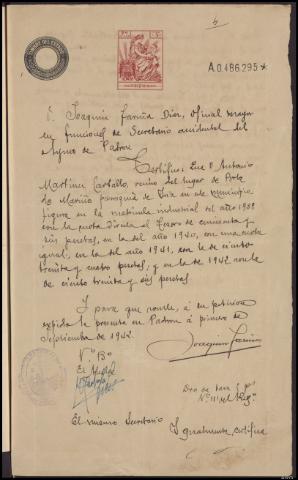 TIMBRE DEL ESTADO
A.0.486.295*
D. Joaquín Fariña Dios, oficial mayor
en funciones de Secretario accidental del
Ayunto de Padron
Certifico: Que D. Antonio
Martinez Carballo, vecino del lugar de
de parroquia de en este municipio
figura en la matricula industrial del año 1938
con la cuota de al Tesoro de cincuenta y
seis pesetas, en la del año 1940, con una cuota
igual, en la del año 1941, con la de ciento
treinta y cuatro pesetas; y en la de 1942 con la
de ciento treinta y seis pesetas.
Y para que conste, á su peticion
expido la presente en Padron á primero de
Septiembre de 1942.
Vº Bº
El Alcalde
Joaquin Fariña
El mismo Secretario
Igualmente, certifica